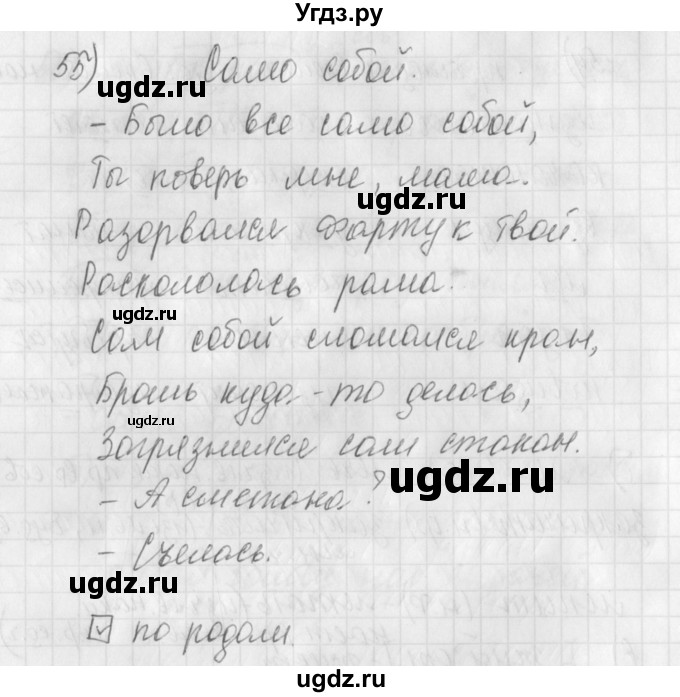 Угдз.ру
55) Само собой.
ugdz.ru
ugdz.ru
- Было все само собой,
Ты поверь мне, мама.
ugdz.ru
Разорвался фартук твой.
Раскололась рама.
ugdz.ru
Сам собой сломался кран,
Брошь куда-то делась,
ugdz.ru
Загрязнился сам стакан.
ugdz.ru
- А сметана?
- Съелась.
ugdz.ru
по родам.
ugdz.ru